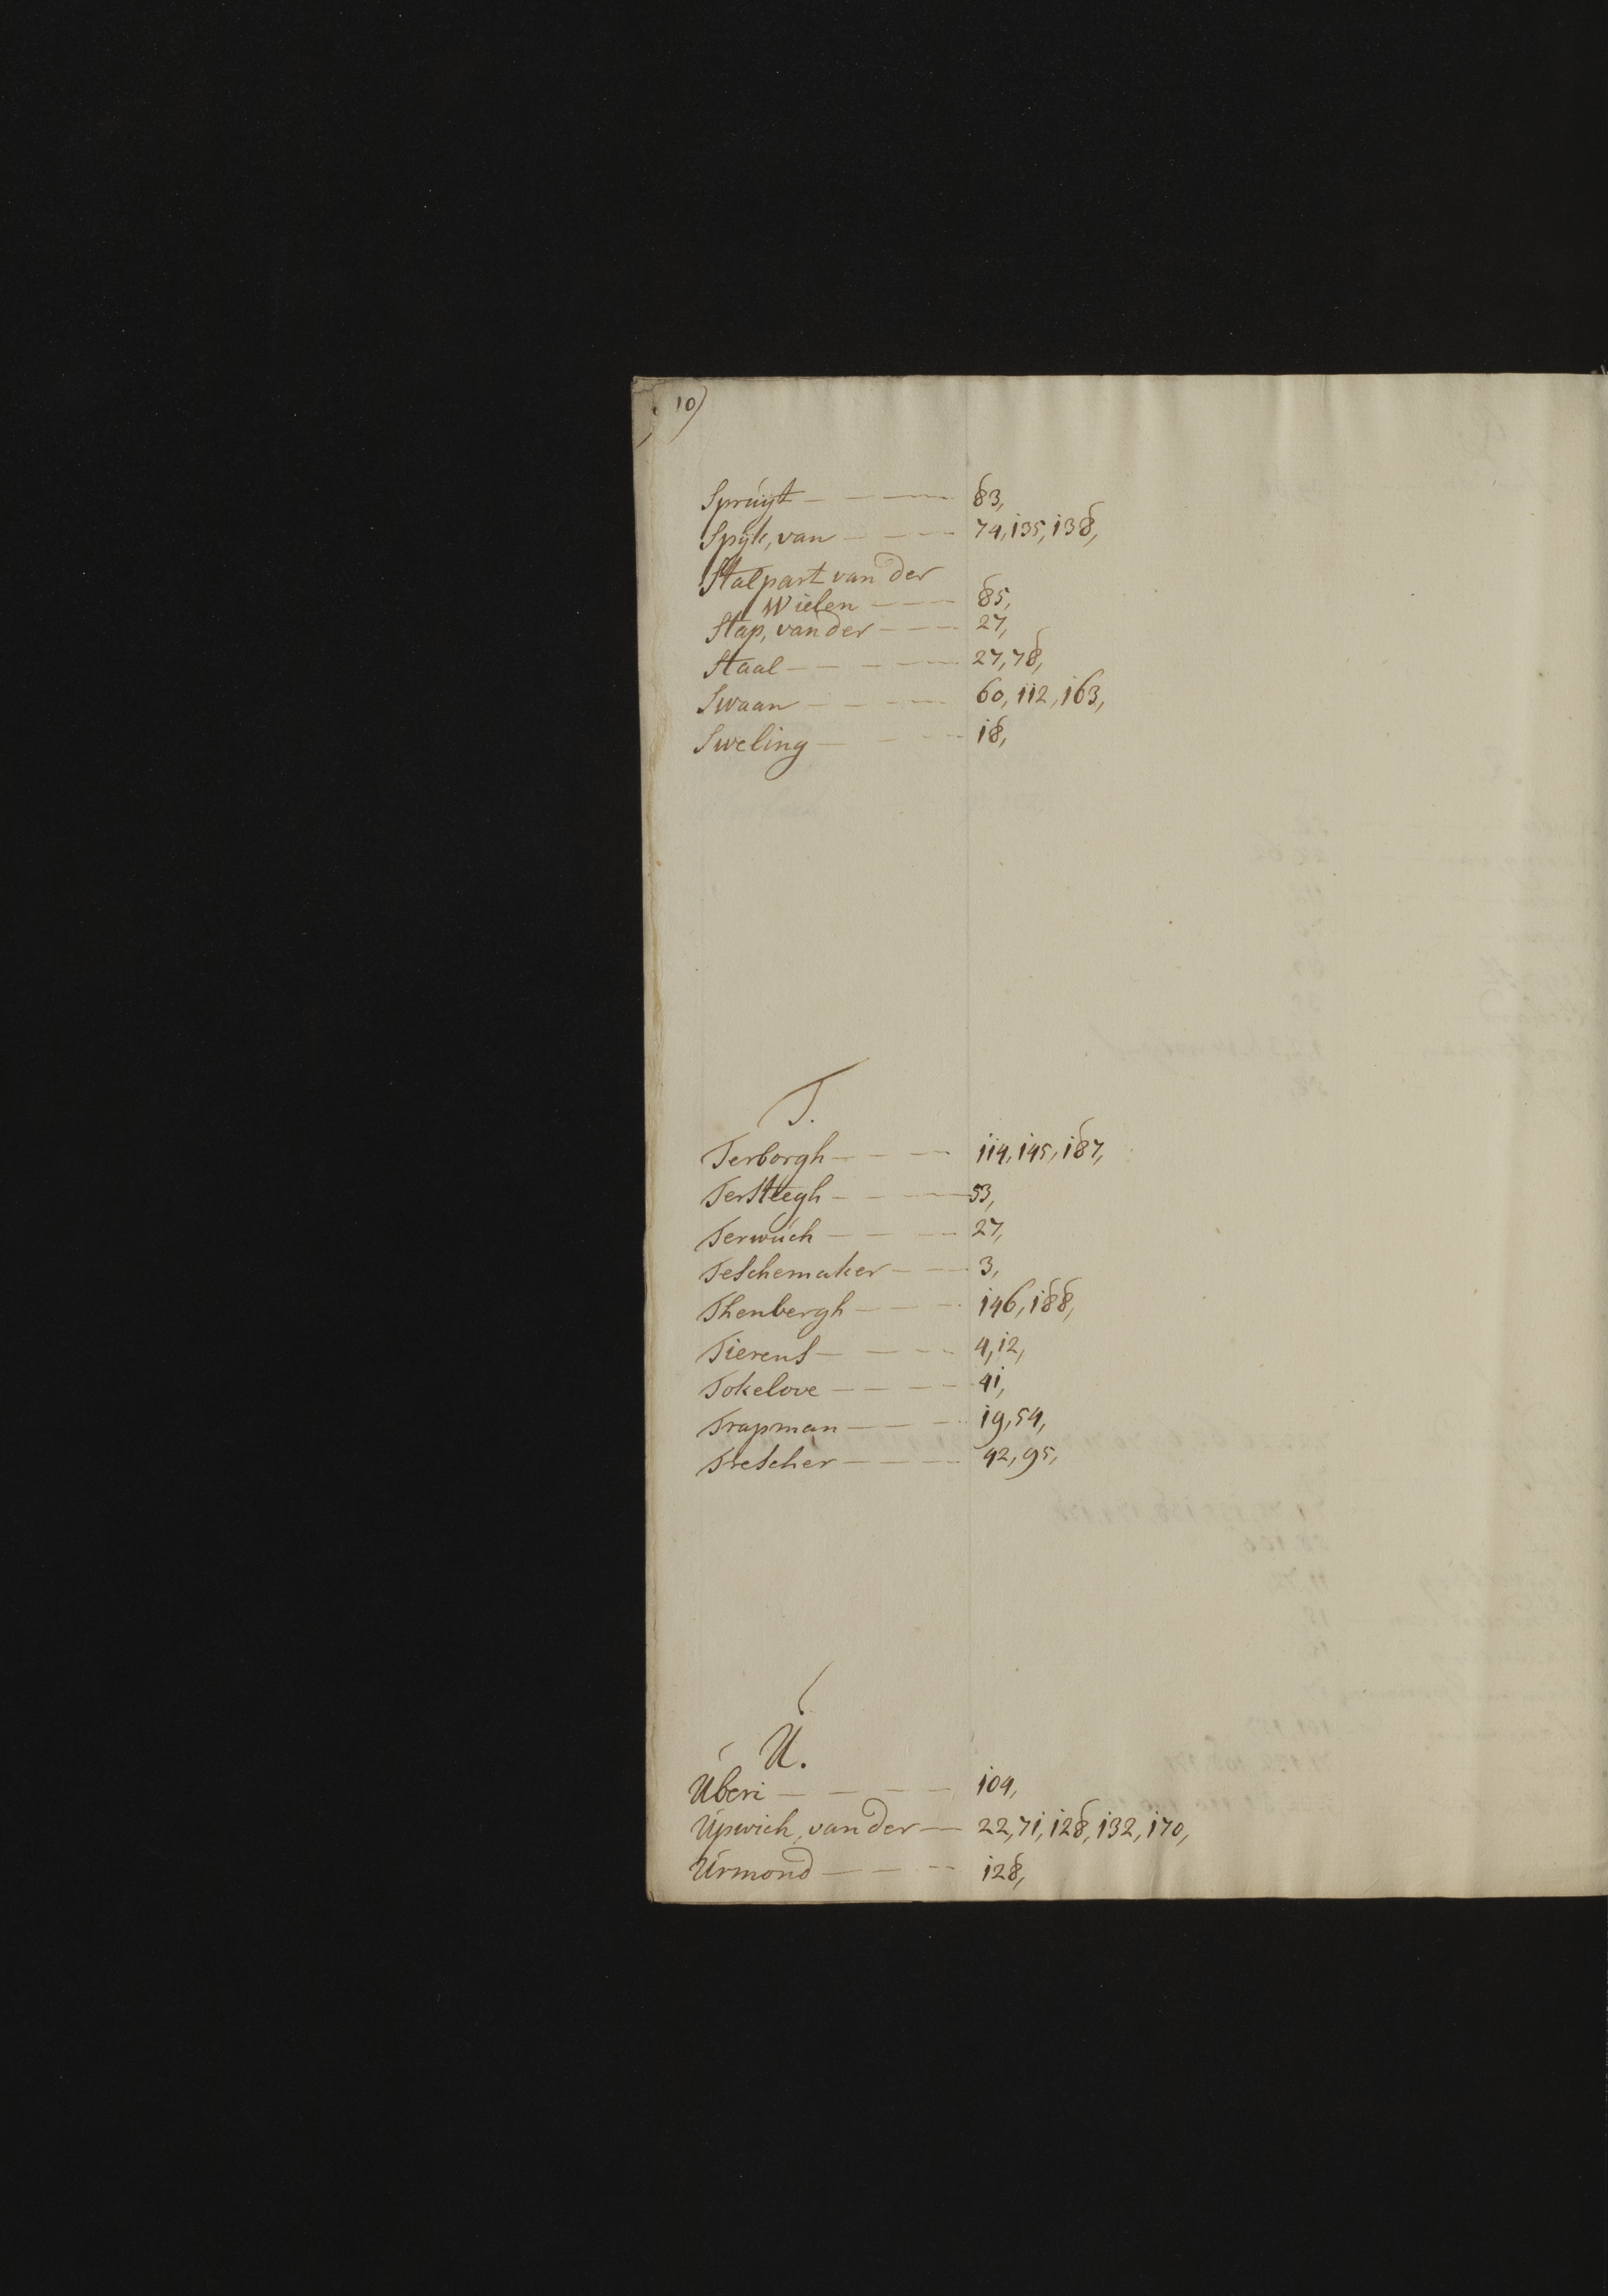 10)
Spruyt - - - - 83,
Spijk, van - - - 74, 135, 138,
Stalpart van der
Wielen - - - 85,
Stap, van der - - - 27,
Staal - - - - 27, 78,
Swaan - - - - 60, 112, 163,
Sweling - - - 18,
T.
Terborgh - - - 114, 145, 187,
Tersteegh - - - 53,
Terwuch - - - 27,
Teschemaker - - - 3,
Thenbergh - - - 146, 188,
Tierens - - - - 4, 12,
Tokelove - - - - 41,
Trapman - - - 19, 54,
Trescher - - - - 42, 95,
U.
Uberi - - - - 104,
Upwich, van der - - 22, 71, 128, 132, 170,
Urmond - - - 128,